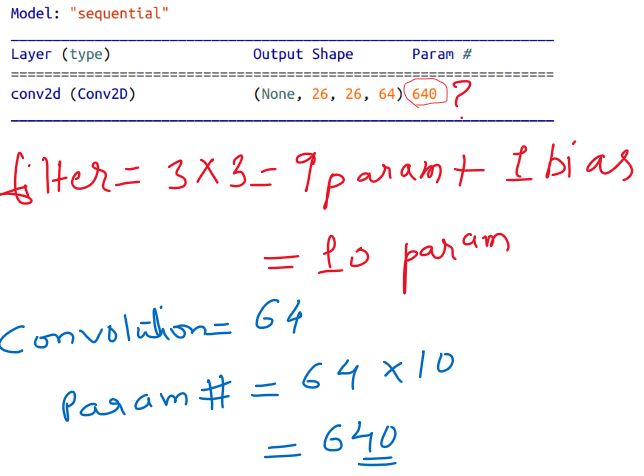 Model: "sequential"
Layer (type) Output Shape Param #
conv2d (Conv2D) (None, 26, 26, 64) 640 ?
filter = 3 x 3 = 9 param + 1 bias
= 10 param
Convolution = 64
Param # = 64 x 10
= 640